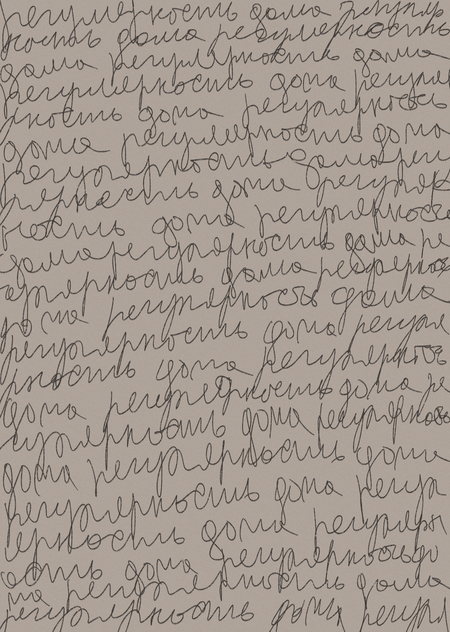 регулярность дома регуляр
ность дома регулярность
дома регулярность дома
регулярность дома регуля
рность дома регулярность
дома регулярность дома
регулярность дома регу
лярность дома регуляр
ность дома регулярность
дома регулярность дома ре
гулярность дома регулярнос
дома регулярность дома
регулярность дома регуля
рность дома регулярность
дома регулярность дома ре
гулярность дома регулярнос
дома регулярность дома
регулярность дома регуля
рность дома регулярн
ость дома регулярность до
ма регулярность дома
регулярность дома регуля